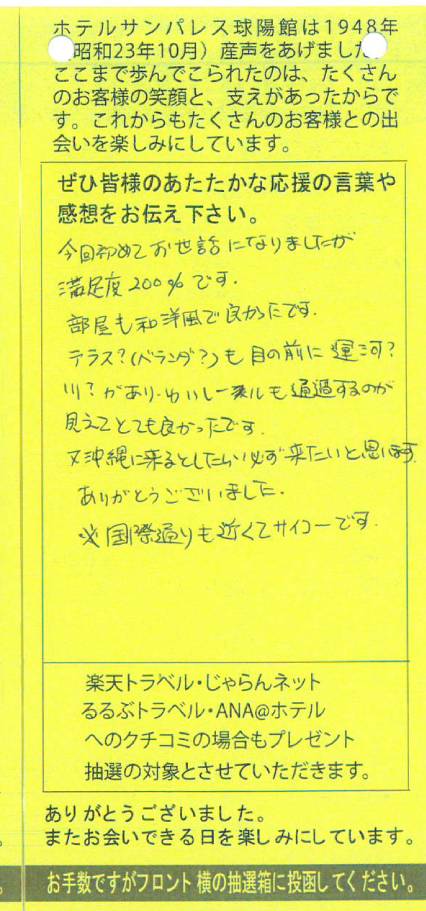 ホテルサンパレス球陽館は1948年
(昭和23年10月）産声をあげました。
ここまで歩んでこられたのは、たくさん
のお客様の笑顔と、支えがあったからで
す。これからもたくさんのお客様との出
会いを楽しみにしています。
ぜひ皆様のあたたかな応援の言葉や
感想をお伝え下さい。
今回初めてお世話になりましたが
満足度200%です.
部屋も和洋風で良かったです.
テラス?(ベランダ?)も目の前に運河?
川?があり、ゆいレールも通過するのが
見えてとても良かったです.
又沖縄に来るとしたら必ず来たいと思います.
ありがとうございました.
※国際通りも近くてサイコーです.
楽天トラベル・じゃらんネット
るるぶトラベル・ANA@ホテル
へのクチコミの場合もプレゼント
抽選の対象とさせていただきます。
ありがとうございました。
またお会いできる日を楽しみにしています。
お手数ですがフロント横の抽選箱に投函してください。